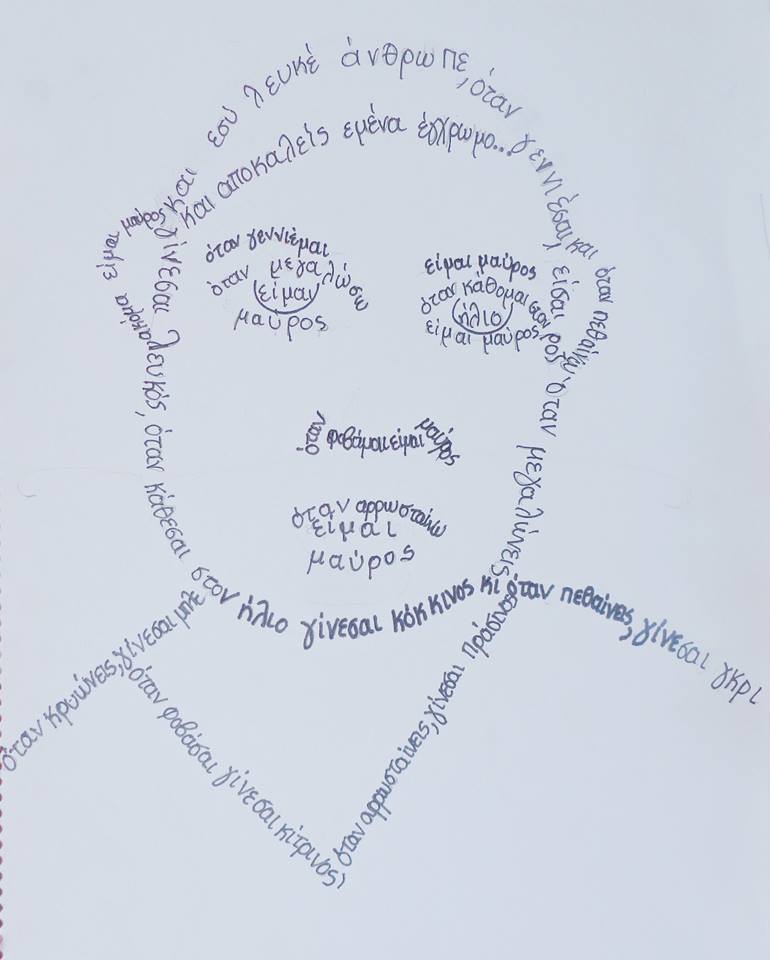 και εσύ λευκέ άνθρωπε, όταν γεννιέσαι είσαι ροζ
και αποκαλείς εμένα έγχρωμο...
όταν γεννιέμαι
όταν μεγαλώσω
είμαι
μαύρος
είμαι μαύρος
όταν κάθομαι στον
ήλιο
είμαι μαύρος
όταν φοβάμαι είμαι μαύρος
όταν αρρωσταίνω
είμαι
μαύρος
και όταν πεθαίνω
ακόμα είμαι μαύρος
όταν μεγαλώνεις
γίνεσαι λευκός, όταν κάθεσαι στον ήλιο γίνεσαι κόκκινος κι όταν πεθαίνεις, γίνεσαι γκρι
όταν κρυώνεις, γίνεσαι μπλε
όταν φοβάσαι γίνεσαι κίτρινος,
όταν αρρωσταίνεις, γίνεσαι πράσινος